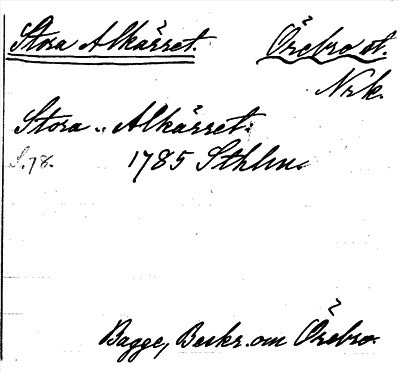 Stora Alkärret. Örebro st.
Nrk.
Stora Alkärret.
S. 78. 1785 Sthlm.
Bagge, Beskr. om Örebro.